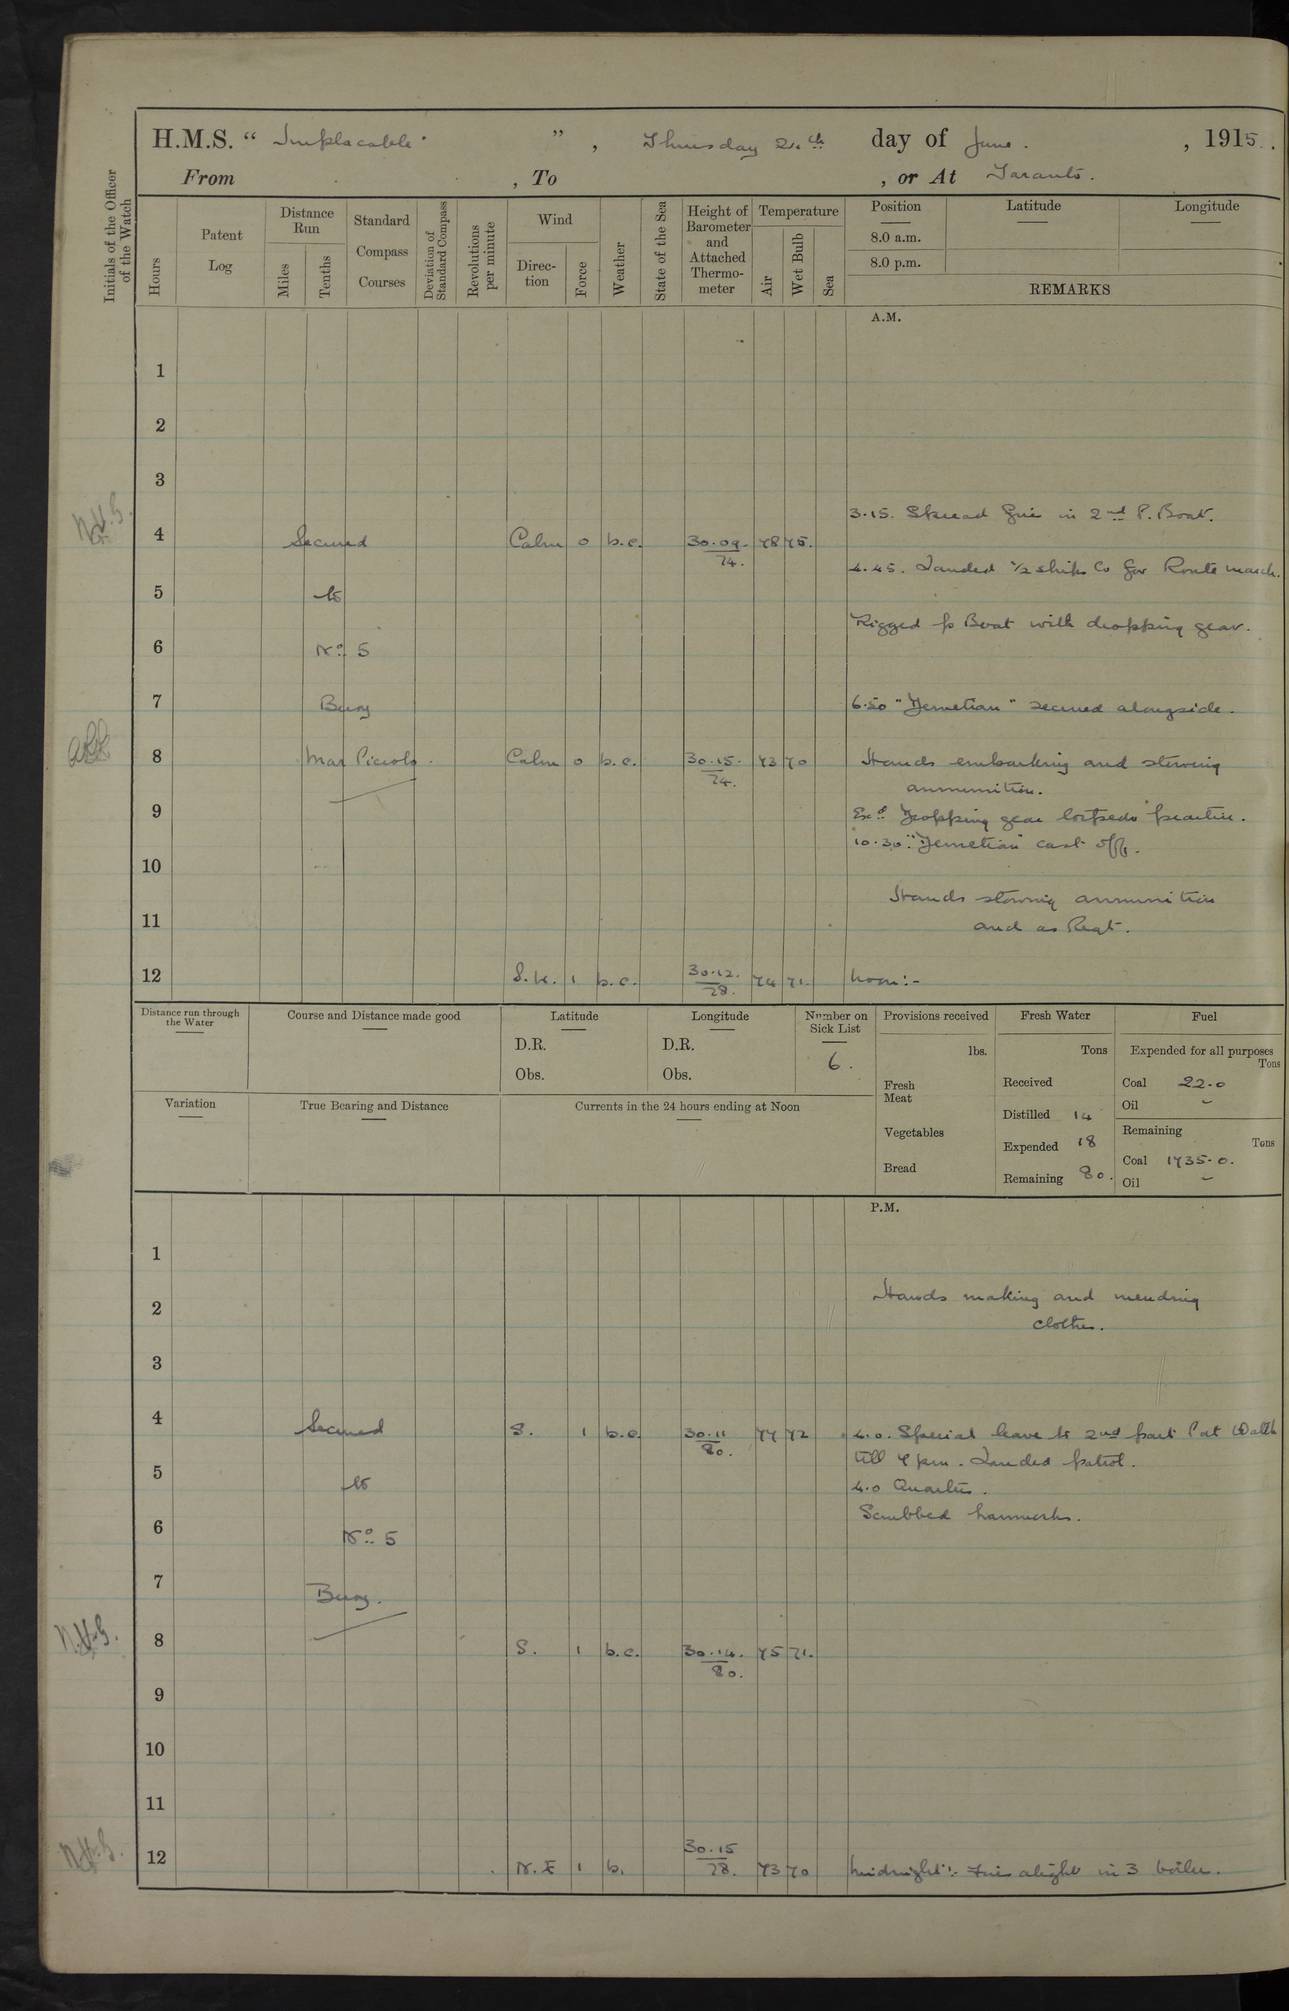 H.M.S. "Implacable", Thursday 24th day of June, 1915.
From , To , or At Taranto.
Initials of the Officer of the Watch
Hours
Patent Log
Distance Run
Miles
Tenths
Standard Compass Courses
Deviation of Standard Compass
Revolutions per minute
Wind
Direction
Force
Weather
State of the Sea
Height of Barometer and Attached Thermometer
Temperature
Air
Wet Bulb
Sea
Position
Latitude
Longitude
8.0 a.m.
8.0 p.m.
REMARKS
A.M.
1
2
3
3.15. Spread fires in 2nd P. Boat.
N.H.S.
4 Secured Calm 0 b.c. 30.09. 74. 78 75.
4.45. Landed ½ ships Co for Route march.
5 to
Rigged p Boat with dropping gear.
6 No. 5
7 Buoy 6.50 "Demetian" secured alongside.
8 Mar Piccolo. Calm 0 b.c. 30.15. 74. 73 70 Hands embarking and stowing
ammunition.
9 Exd Dropping gear torpedo practice.
10.30. "Demetian" cast off.
10
Hands stowing ammunition
11 and as Reqt.
12 S.W. 1 b.c. 30.12. 78. 74 71. Noon:-
Distance run through the Water
Course and Distance made good
Latitude
D.R.
Obs.
Longitude
D.R.
Obs.
Number on Sick List
6.
Provisions received
lbs.
Fresh Meat
Vegetables
Bread
Fresh Water
Tons
Received
Distilled 14
Expended 18
Remaining 80.
Fuel
Expended for all purposes
Tons
Coal 22.0
Oil -
Remaining
Tons
Coal 1735.0.
Oil -
Variation
True Bearing and Distance
Currents in the 24 hours ending at Noon
P.M.
1
2 Hands making and mending
clothes.
3
4 Secured S. 1 b.c. 30.11 80. 77 72 4.0. Special leave to 2nd part Port Watch
till 7 pm. Landed patrol.
5 to 4.0 Quarters.
Scrubbed hammocks.
6 No. 5
7 Buoy.
N.H.S.
8 S. 1 b.c. 30.14. 80. 75 71.
9
10
11
N.H.S.
12 N.E 1 b. 30.15 78. 73 70 Midnight:- Fires alight in 3 boilers.